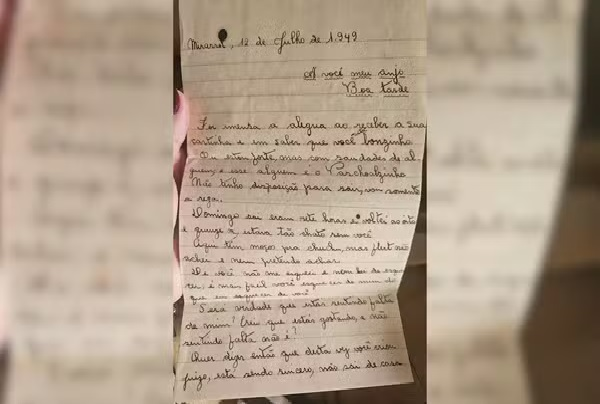 Mirassol, 12 de Julho de 1.949
A você meu anjo
Boa tarde
Foi imensa a alegria ao receber a sua
cartinha e em saber que você bonzinho
Eu estou forte, mas com saudades de al
guem, e esse alguem é o Paschoalzinho
Não tenho disposição para sair, vou somente
a reza.
Domingo sai eram sete horas e voltei as oito
e quinze, estava tão chato sem você
Aqui têm moços pra chuchu, mas flert não
achei e nem pretendo achar.
De você não me esqueci e nem hei de esque
cer, é mais facil você esquecer de mim do
que eu esquecer de você
Será verdade que estás sentindo falta
de mim? Creu que estás gostando, e não
sentindo falta não é?
Quer dizer então que desta vez você criou
juizo, está sendo sincero, não sai de casa